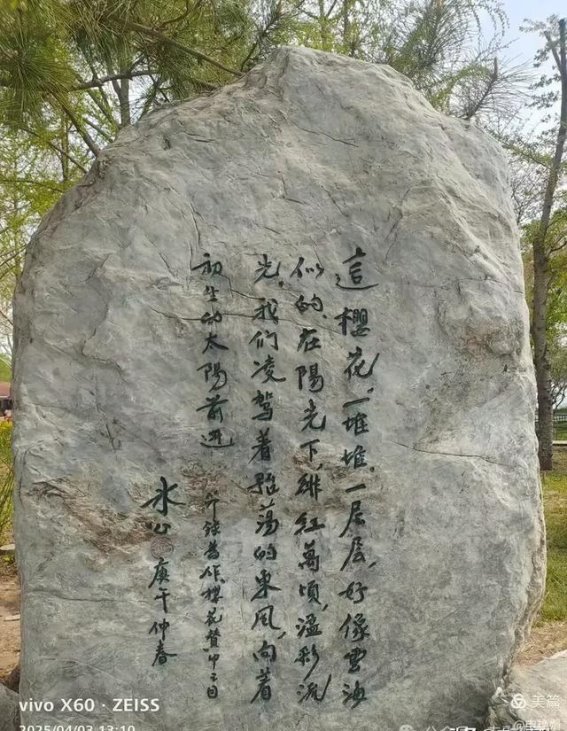 這櫻花,一堆堆,一层层,好像雲海
似的,在陽光下,緋紅萬頃,溢彩流
光,我们凌駕着駘荡的東风,向着
初生的太陽前進
节錄舊作櫻花贊中之句
冰心
庚午仲春
vivo X60 · ZEISS
2025/04/03 13:10
美篇